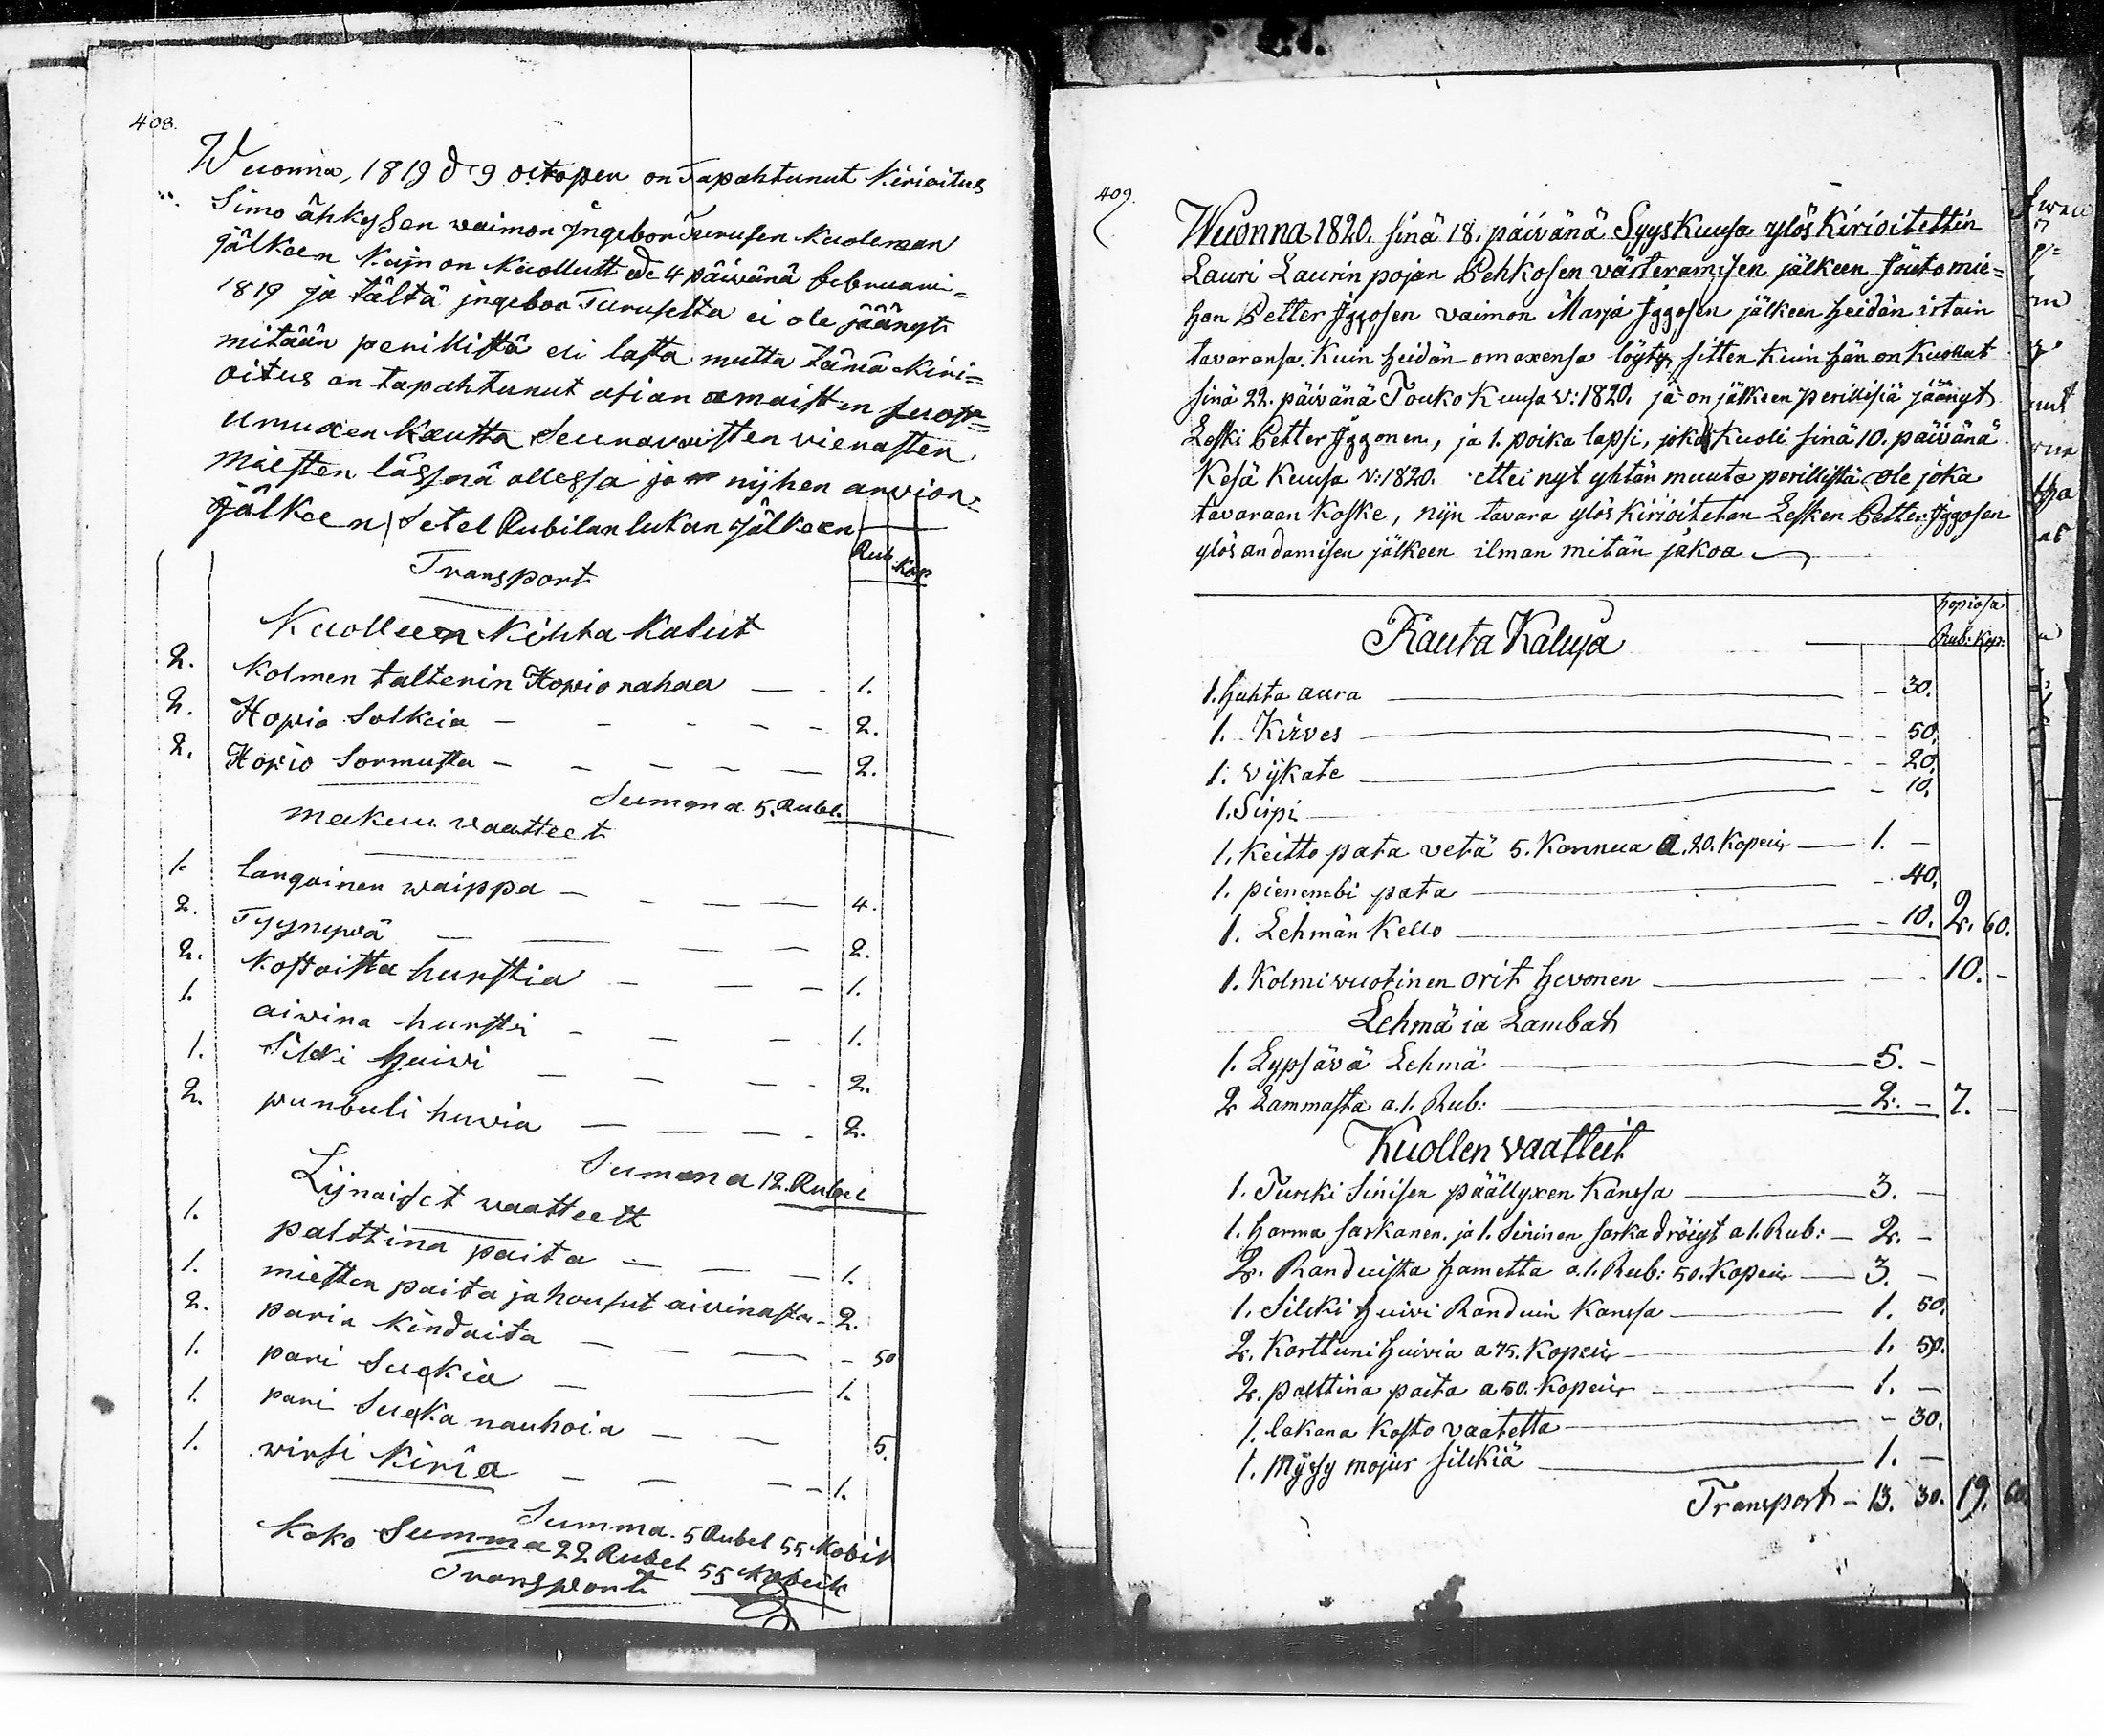 408.
Wuonna, 1819 d 9 octoper on Tapahtunut Kirioitus
Simo ähkysen waimon Jngebor Turusen Kuoleman
jälkeen Kujn on Kuollutt de 4 päiwänä februarii=
1819 ja tältä jngebor Turuselta ei ole jäänyt
mitään perillistä eli lasta mutta tämä Kiri=
oitus on tapahtunut asian omaisten suos=
umuxen Kautta Seuraawaisten vierasten
Miesten läsnä ollessa ja nijhen arvion
Jälkeen Setel Rubilan lukun jälkeen
Rub. Kop.
Transport
Kuolleen Kihla Kalut
2. Kolmen talterin Hopio rahaa — 1.
2. Hopia Solkeia — 2.
2. Hopio Sormusta — 2.
Summa 5. Rubel.
makuu vaatteet
1. langainen waippa — 4.
2. Tyynywä — 2.
2. Kostoista hurstia — 1.
1. aiwina hursti — 1.
1. Silcki huiwi — 2.
2. punbuli huvia — 2.
Summa 12. Rubel
Lijnaiset waatteett
1. palttina paita — 1.
1. miesten paita ja housut aivinasta - 2.
2. paria Kindaita — 50
1. pari Suckia — 1.
1. pari Sucka nauhoia — 5.
1. wirsi Kiria — 1.
Summa. 5 Rubel 55 Kobik
Koko Summa 22 Rubel 55 Kobeik
Transport
409.
Wuonna 1820. sinä 18. päivänä SyysKuusa ylös Kirioitettin
Lauri Laurin pojan Pehkosen värteramisen jälkeen Jouto mie=
hen Petter Jggosen vaimon Marja Jggosen jälkeen heidän irtain
tavaransa. Kuin heidän omaxensa löyty, sitten Kuin hän on Kuollut
sinä 22. päivänä Touko Kuusa v: 1820. ja on jälkeen perillisiä jäänyt
Leski Petter Jggonen, ja 1. poika lapsi, joka Kuoli sinä 10. päivänä
Kesä Kuusa v: 1820. ettei nyt yhtän muuta perillistä ole joka
tavaraan Koske, nijn tavara ylös Kirioitetan Lesken Petter Jggosen
ylös andamisen jälkeen ilman mitän jakoa
hopiosa
Rub: Kop:
Rauta Kaluja
1. huhta aura — 30.
1. Kirves — 50.
1. vijkate — 20.
1. Sirpi — 10.
1. Keitto pata vetä 5. Kannua a. 20. Kopeix — 1. —
1. pienembi pata — 40.
1. Lehmän Kello — 10. 2. 60.
1. Kolmivuotinen orit hevonen — 10. —
Lehmä ia Lambat
1. Lypsävä Lehmä — 5. —
2 Lammasta a. 1. Rub: — 2. — 7. —
Kuollen vaatteit
1. Turcki Sinisen päällyxen Kanssa — 3. —
1. harma Sarkanen. ja 1. Sininen Sarka dröigt a 1. Rub: — 2. —
2. Randuista hametta a. 1. Rub: 50. Kopeix — 3. —
1. Silcki huivi Randuin Kanssa — 1. 50.
2. Karttuni huivia a 75. Kopeix — 1. 50.
2. palttina paita a 50. Kopeix — 1. —
1. lakana Kosto vaatetta — 30.
1. Myssy mojur silckiä — 1. —
Transport — 13. 30. 19. 60.